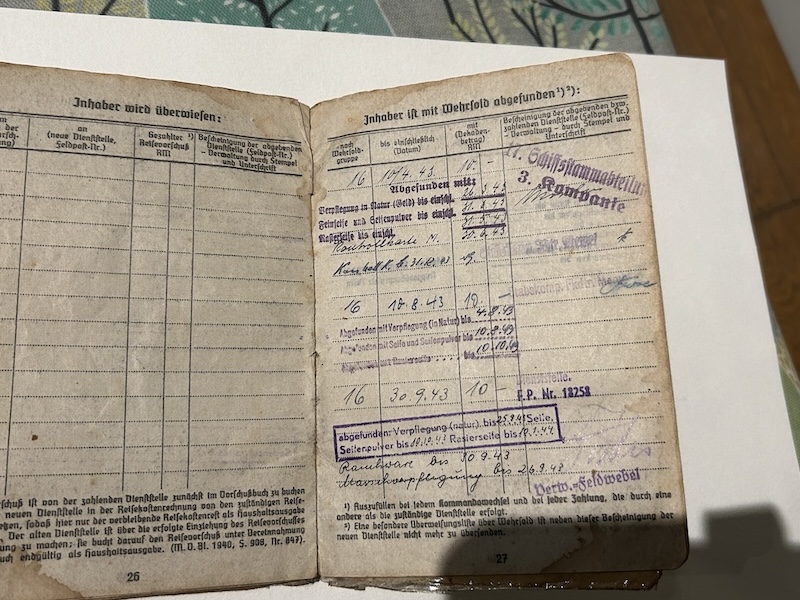 Inhaber wird überwiesen:
an
(neue Dienststelle,
Feldpost-Nr.)
Gezahlter ³)
Reisevorschuß
RM
Bescheinigung der abgebenden
Dienststelle (Feldpost-Nr.)
- Verwaltung - durch Stempel
und Unterschrift
schuß ist von der zahlenden Dienststelle zunächst im Vorschußbuch zu buchen
neuen Dienststelle in der Reisekostenrechnung von den zuständigen Reise-
etzen, sodaß hier nur der verbleibende Reisekostenrest als Haushaltsausgabe
Der alten Dienststelle ist über die erfolgte Einziehung des Reisevorschusses
ung zu machen; sie bucht darauf den Reisevorschuß unter Vereinnahmung
uch endgültig als Haushaltsausgabe. (M. D. Bl. 1940, S. 908, Nr. 847).
26
Inhaber ist mit Wehrsold abgefunden¹)²):
nach
Wehrsold-
gruppe
bis einschließlich
(Datum)
mit
(Dekaden-
betrag)
RM
Bescheinigung der abgebenden bzw.
zahlenden Dienststelle (Feldpost-Nr.)
- Verwaltung - durch Stempel und
Unterschrift
16 10/4. 43. 10 -
Schiffsstammabteilung
3. Kompanie
Abgefunden mit:
Verpflegung in Natur (Geld) bis einschl.
Feinseife und Seifenpulver bis einschl.
Rasierseife bis einschl.
Kontrollkarte
16 10.8.43 10 -
Abgefunden mit Verpflegung (in Natur) bis 4.8.43
Abgefunden mit Seife und Seifenpulver bis 10.8.43
Rasierseife bis 10.10.43
16 30.9.43 10 -
Dienststelle.
F.P. Nr. 18258
abgefunden: Verpflegung (natur). bis 25.9.43 Seife,
Seifenpulver bis 10.10.43 Rasierseife bis 10.1.44
Rauchware bis 30.9.43
Marschverpflegung bis 26.9.43
Verw.-Feldwebel
¹) Auszufüllen bei jedem Kommandowechsel und bei jeder Zahlung, die durch eine
andere als die zuständige Dienststelle erfolgt.
²) Eine besondere Überweisungsliste über Wehrsold ist neben dieser Bescheinigung der
neuen Dienststelle nicht mehr zu übersenden.
27